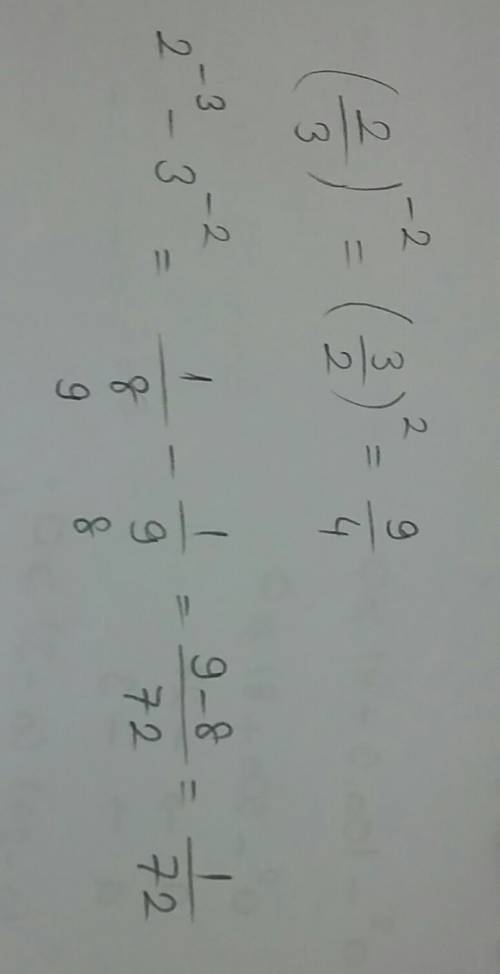 (2/3)⁻² = (3/2)² = 9/4
2⁻³ - 3⁻² = 1/8 - 1/9 = 9-8/72 = 1/72
9 8